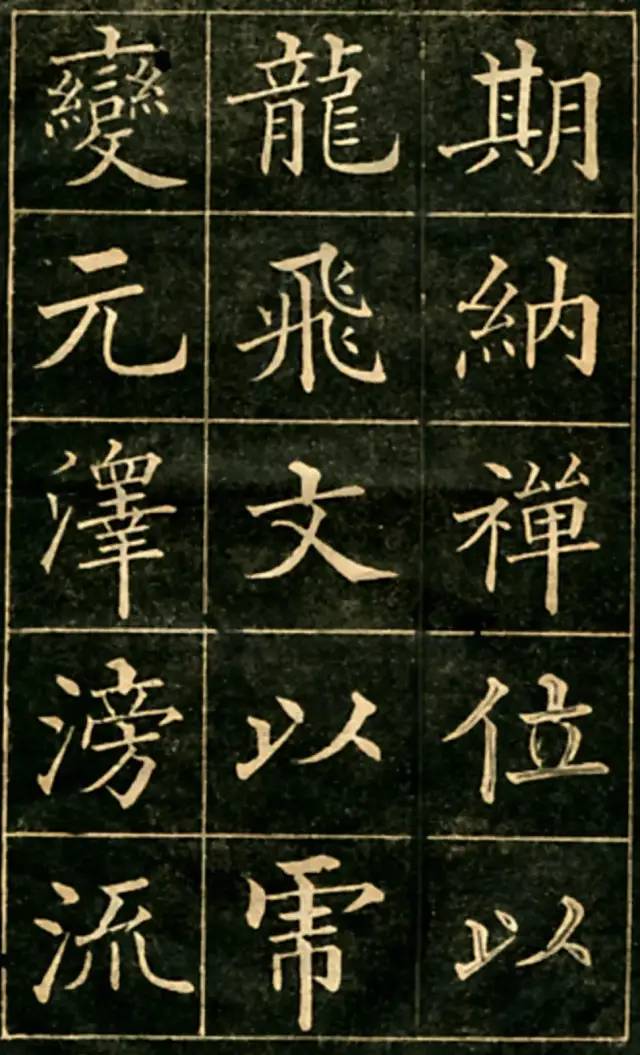 期納禪位以
龍飛文以乕
變元澤滂流